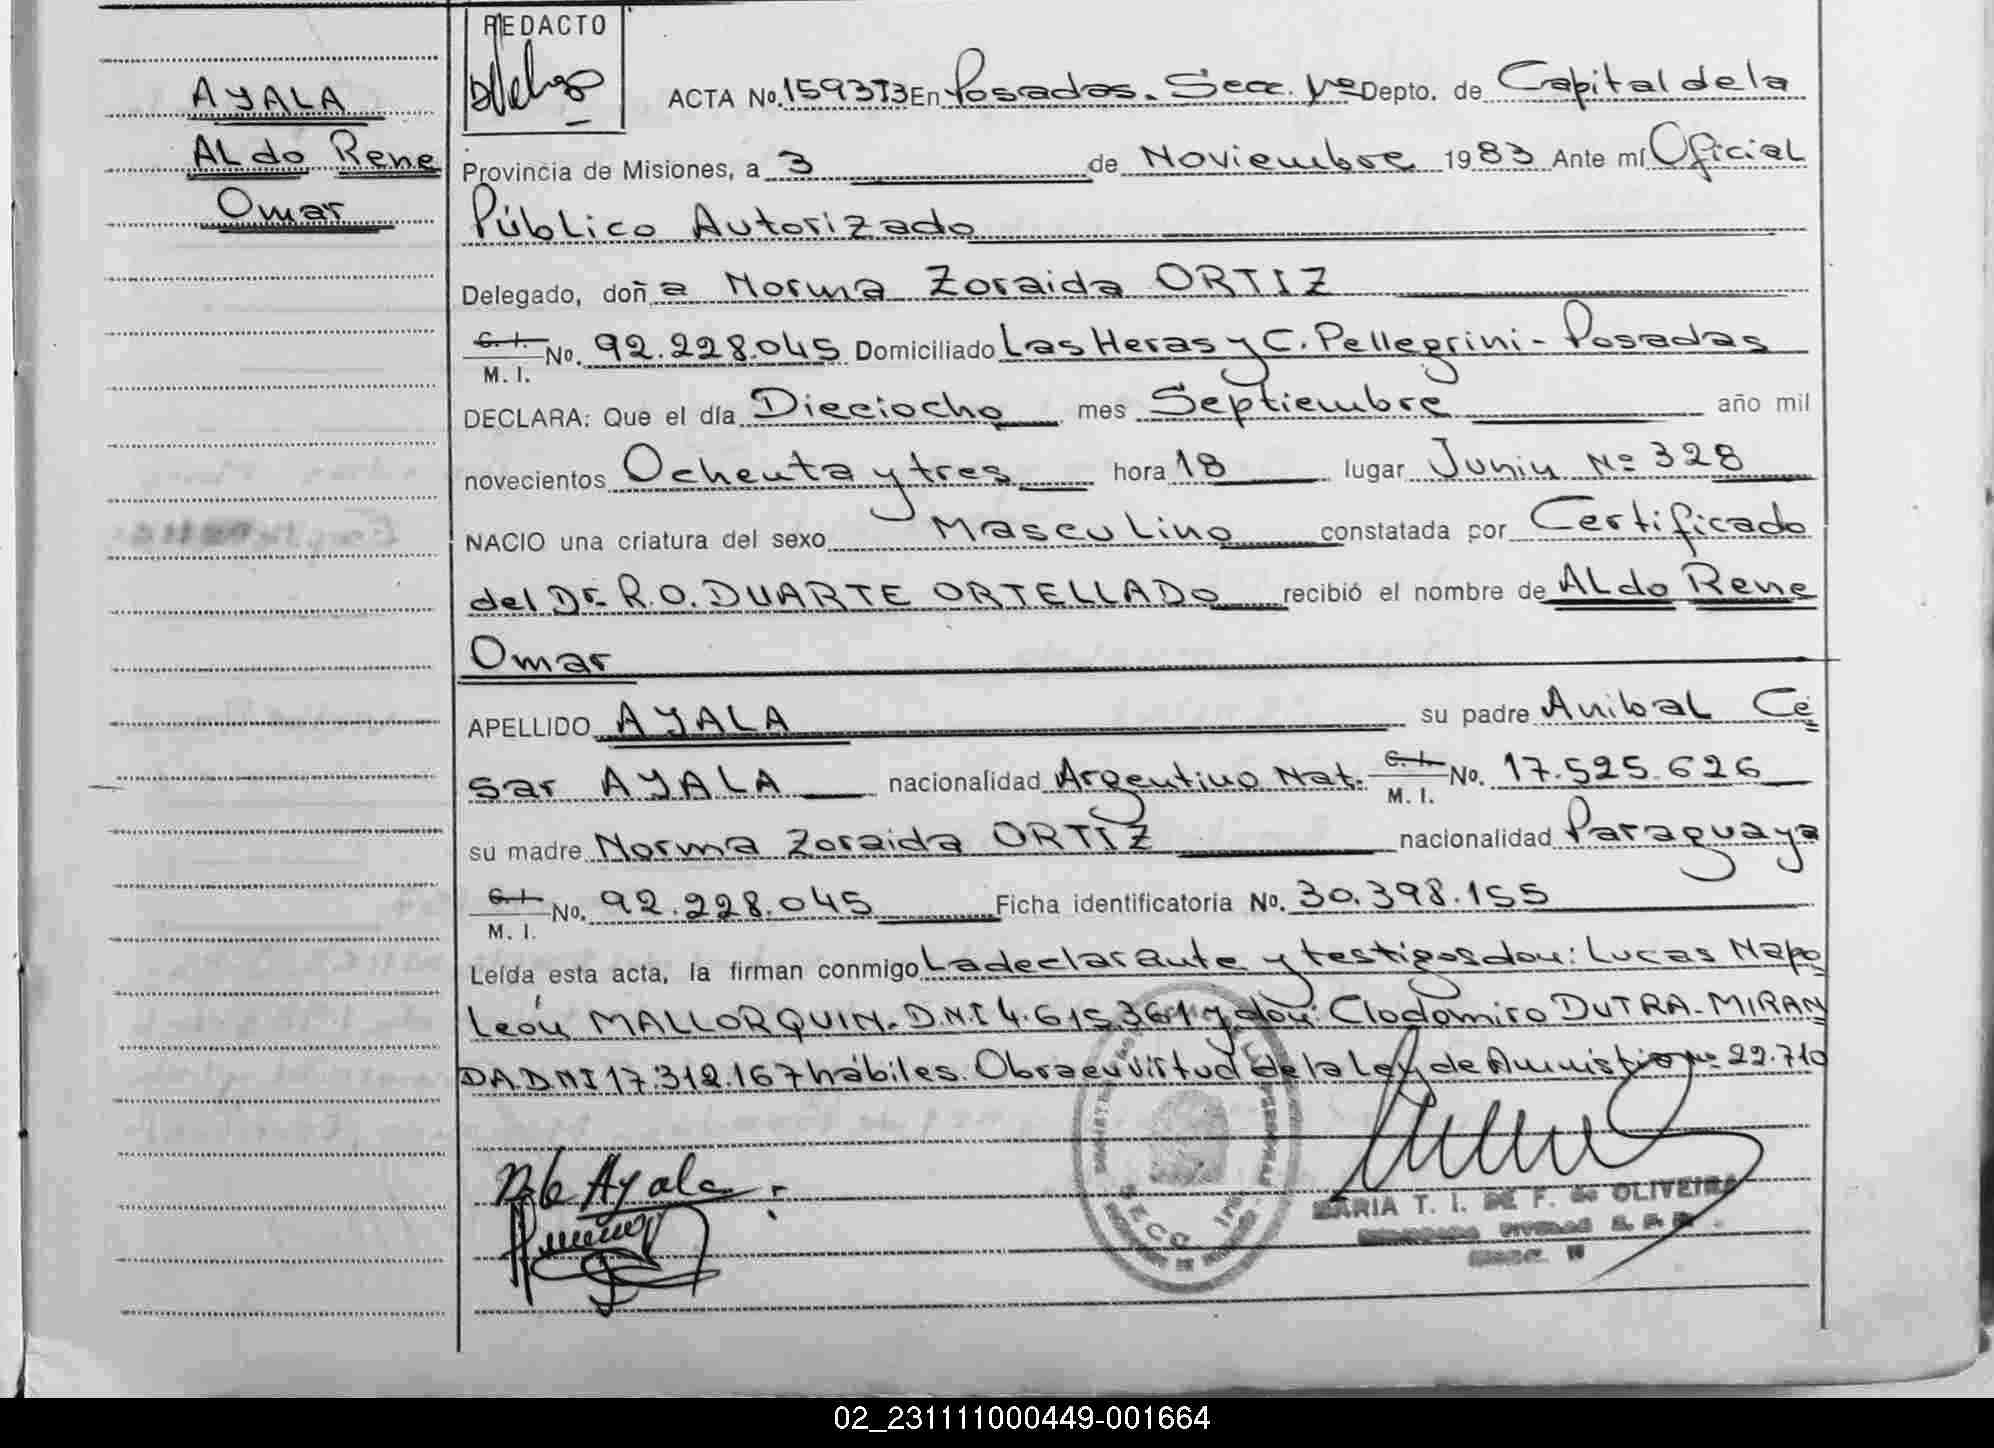 AYALA
Aldo Rene
Omar
REDACTO
ACTA No. 1593T3 En Posadas. Secc. 1ra Depto. de Capital de la
Provincia de Misiones, a 3 de Noviembre 1983 Ante mí Oficial
Público Autorizado
Delegado, doña Norma Zoraida ORTIZ
C. I.
M. I. No. 92.228.045 Domiciliado Las Heras y C. Pellegrini - Posadas
DECLARA: Que el día Dieciocho mes Septiembre año mil
novecientos Ochenta y tres hora 18 lugar Junin Nº 328
NACIO una criatura del sexo Masculino constatada por Certificado
del Dr. R.O. DUARTE ORTELLADO recibió el nombre de Aldo Rene
Omar
APELLIDO AYALA su padre Anibal Cé
sar AYALA nacionalidad Argentino Nat. C. I. No. 17.525.626
M. I.
su madre Norma Zoraida ORTIZ nacionalidad Paraguaya
C. I.
M. I. No. 92.228.045 Ficha identificatoria No. 30.398.155
Leída esta acta, la firman conmigo La declarante y testigos don: Lucas Napo
león MALLORQUIN. D.N.I 4.615.361 y don: Clodomiro DUTRA-MIRAN
DA DNI 17.312.167 hábiles. Obra en virtud de la Ley de Amnistia Nº 22.710
Ayala
MARIA T. I. DE F. de OLIVEIRA
02_231111000449-001664